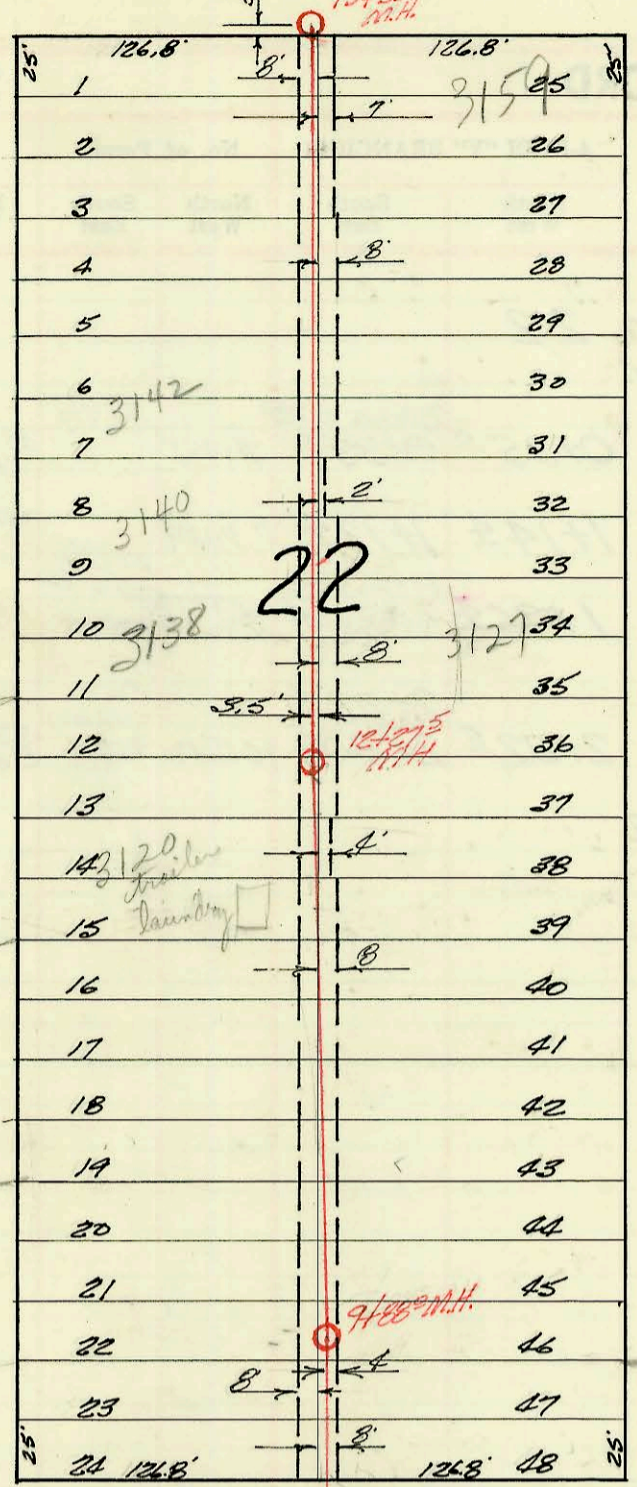 M.H.
25' 126.8' 126.8' 25'
1 8' 3159 25
7'
2 26
3 27
4 8' 28
5 29
6 3142 30
7 31
8 3140 2' 32
9 22 33
10 3138 3127 34
8'
11 35
3.5'
12 12+27⁵ 36
M.H
13 37
14 3120 4' 38
trailer
laundry
15 39
16 8 40
17 41
18 42
19 43
20 44
21 45
9+88⁰ M.H.
22 46
8 4
23 47
8'
25' 24 126.8' 126.8' 48 25'